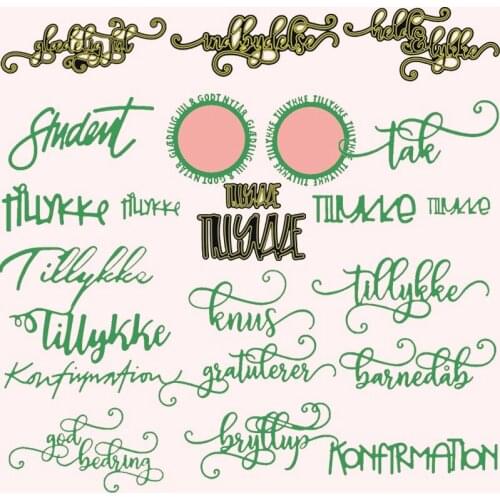 glædelig jul
indbydelse
held & lykke
Student
GLÆDELIG JUL & GODT NYTÅR GLÆDELIG JUL & GODT NYTÅR
TILLYKKE TILLYKKE TILLYKKE TILLYKKE TILLYKKE
tak
TILLYKKE
TILLYKKE
TILLYKKE
TILLYKKE
TILLYKKE
TILLYKKE
Tillykke
knus
tillykke
Tillykke
Konfirmation
gratulerer
barnedåb
god
bedring
bryllup
KONFIRMATION